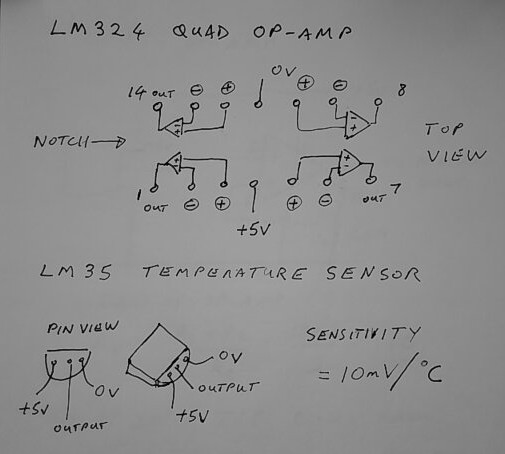 LM324 QUAD OP-AMP
14 OUT ⊖ ⊕ 0V ⊕ ⊖ 8
- + - +
NOTCH → TOP
VIEW
- + - +
1 OUT ⊖ ⊕ +5V ⊕ ⊖ OUT 7
LM35 TEMPERATURE SENSOR
PIN VIEW
+5V OUTPUT 0V
0V
OUTPUT
+5V
SENSITIVITY
= 10mV/°C